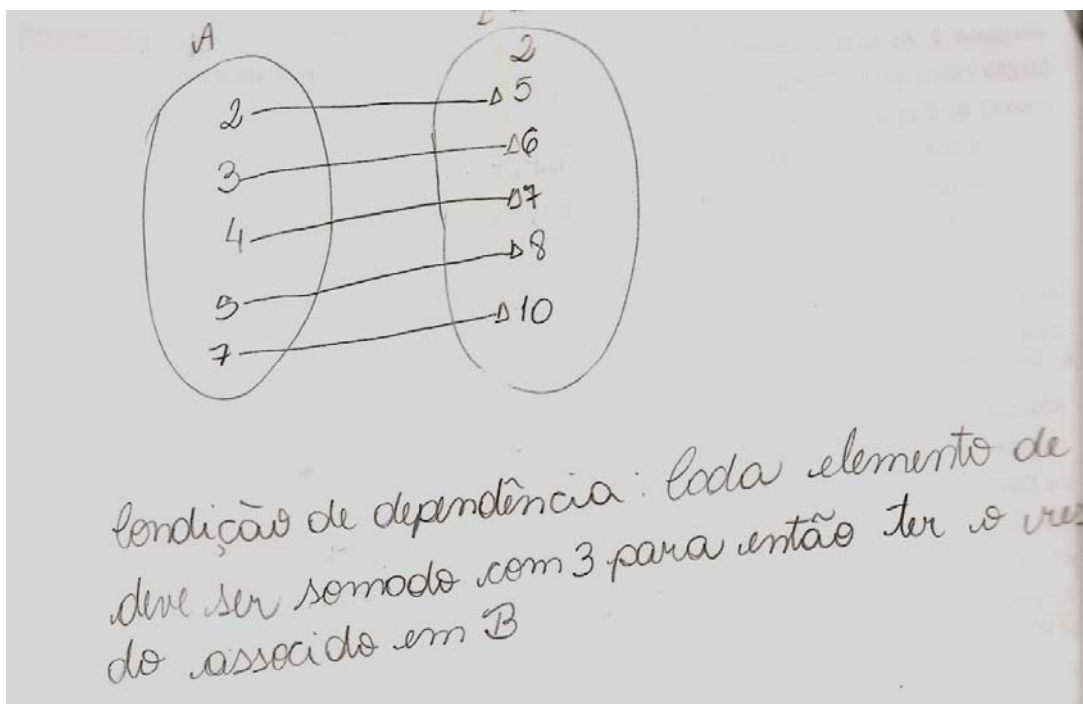 A
2
2 5
3 6
4 7
5 8
7 10
Condição de dependência: Cada elemento de
deve ser somado com 3 para então ter o res
do assocido em B